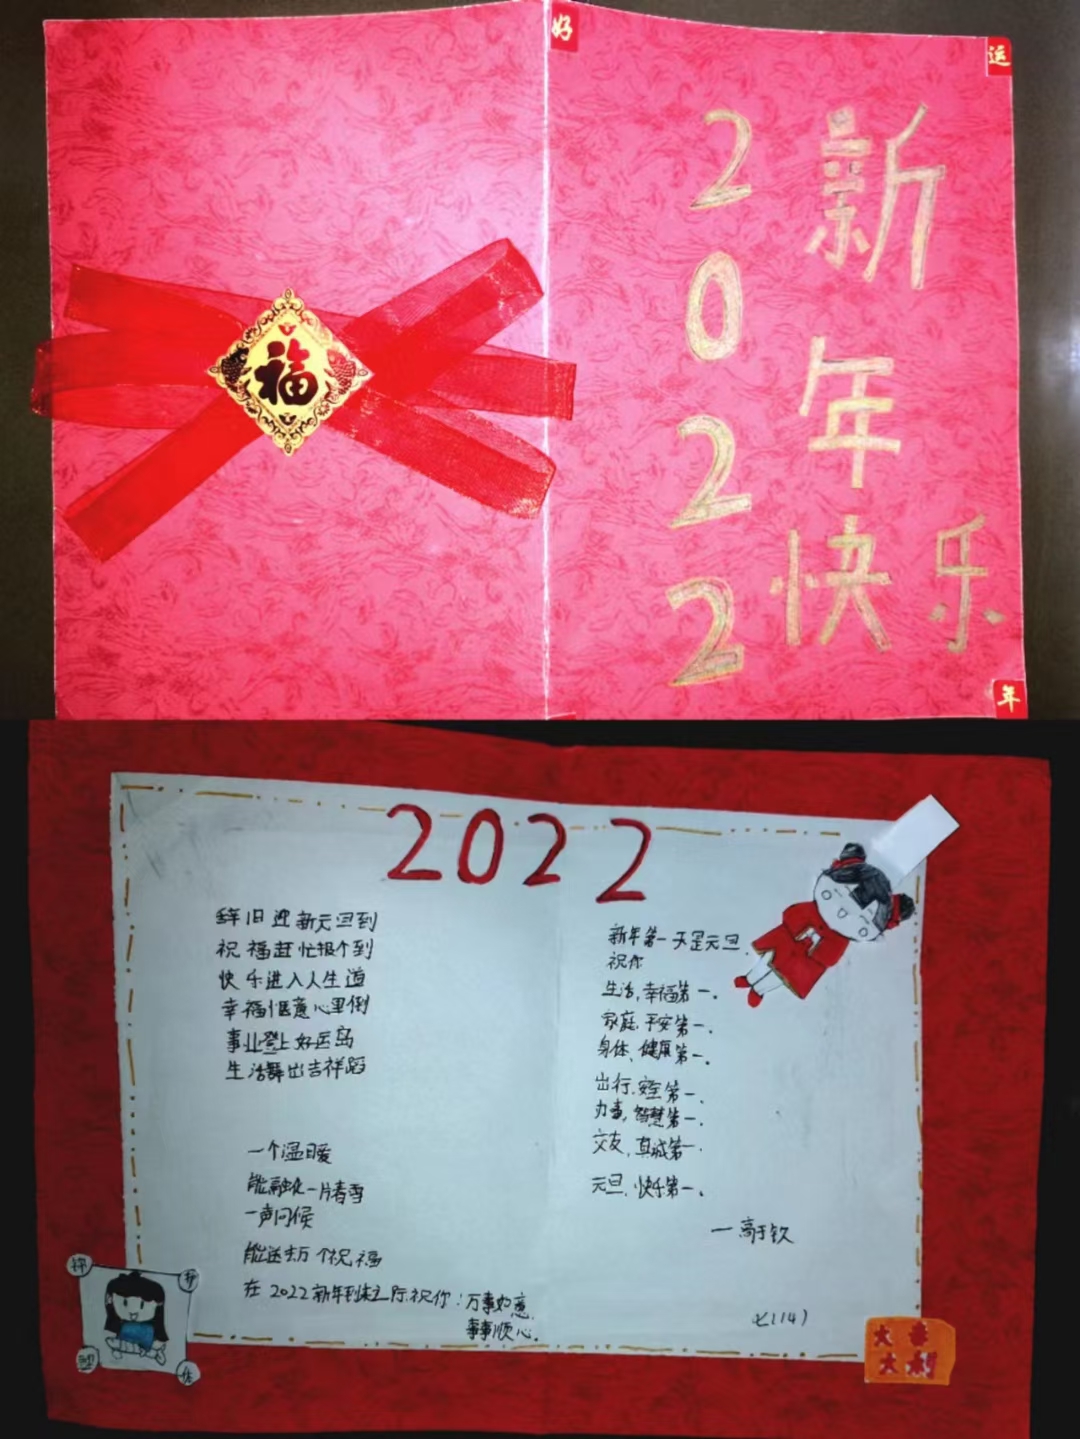 好
运
福
2022
新年快乐
年
2022
辞旧迎新元旦到
祝福赶忙报个到
快乐进入人生道
幸福惬意心里倒
事业登上好运岛
生活舞出吉祥蹈
一个温暖
能融化一片春雪
一声问候
能送去万个祝福
在2022新年到来之际,祝你:万事如意,
事事顺心。
新年第一天是元旦,
祝你
生活,幸福第一。
家庭,平安第一。
身体,健康第一。
出行,安全第一。
办事,智慧第一。
交友,真诚第一.
元旦,快乐第一。
七(14)
大吉
大利